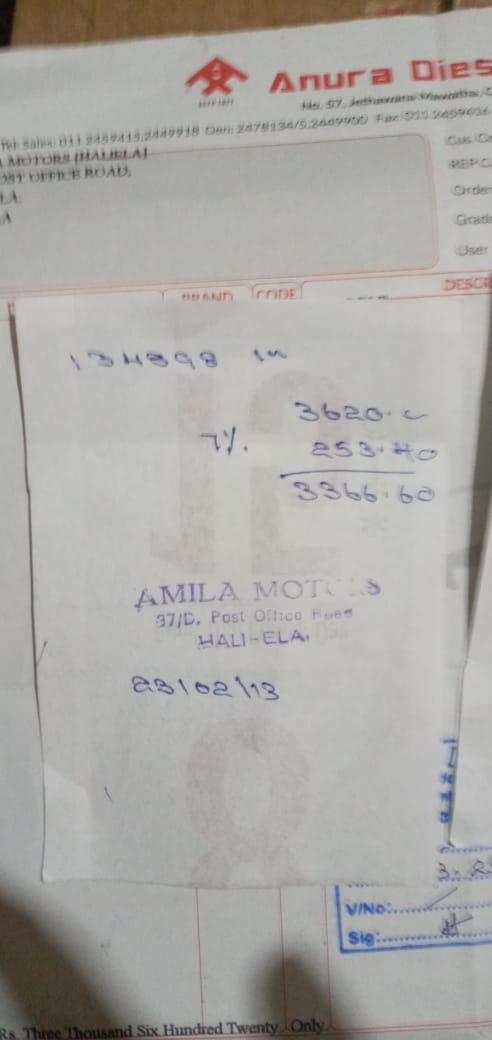 Anura Dies
No. 57,
Tel: Sales: 011 2459415,2449918 Gen: 2478134/5,2669900 Fax:
A MOTORS [HALIELA]
OST OFFICE ROAD,
LA.
A
Cus
REP C
Order
User
BRAND CODE DESCR
134898 in
3620.
7%. 253.40
3366.60
AMILA MOT
37/D, Post Office Road
HALI-ELA.
23/02/13
V/No:
Sig:
Rs. Three Thousand Six Hundred Twenty Only